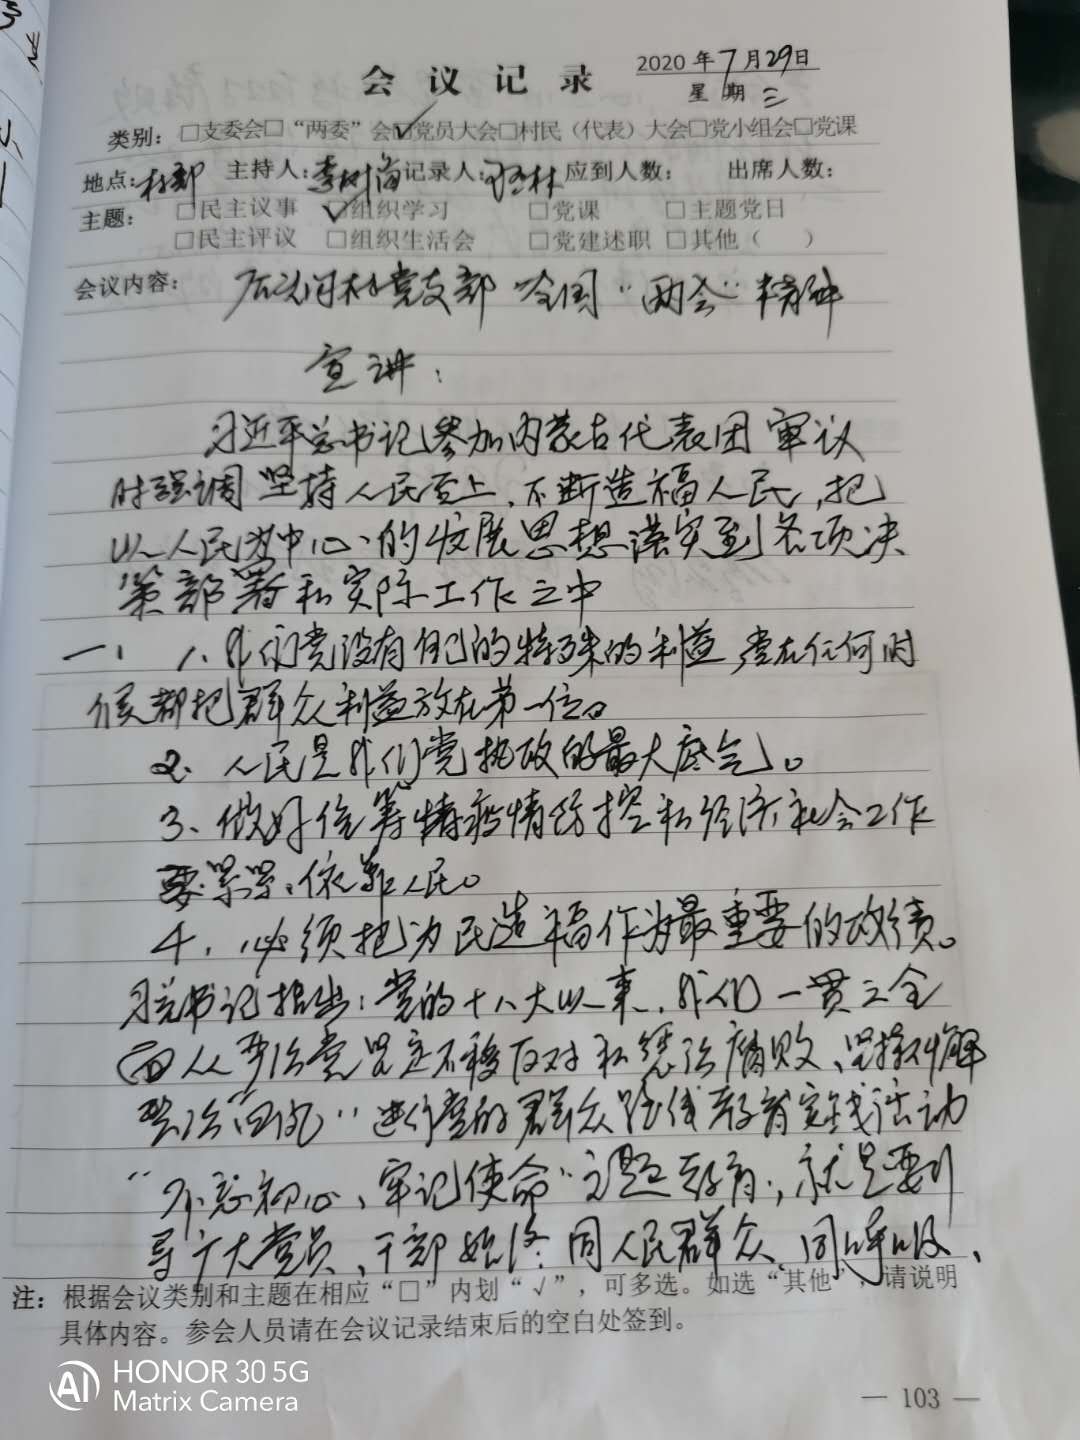 会议记录
2020年7月29日
星期三
类别：□支委会□“两委”会☑党员大会□村民（代表）大会□党小组会□党课
地点：村部 主持人：李树海 记录人： 应到人数： 出席人数：
主题：□民主议事 ☑组织学习 □党课 □主题党日
□民主评议 □组织生活会 □党建述职 □其他（ ）
会议内容： 村党支部 全国“两会”精神
宣讲：
习近平总书记参加内蒙古代表团审议
时强调坚持人民至上，不断造福人民，把
以人民为中心的发展思想落实到各项决
策部署和实际工作之中
一、1、我们党没有自己的特殊的利益，党在任何时
候都把群众利益放在第一位。
2、人民是我们党执政的最大底气。
3、做好统筹情疫情防控和经济社会工作
要紧紧依靠人民。
4、必须把为民造福作为最重要的政绩。
习总书记指出：党的十八大以来，我们一贯之全
面从严治党坚定不移反对和惩治腐败、坚持不懈
整治“四风”进行党的群众路线教育实践活动
“不忘初心、牢记使命”主题教育，就是要引
导广大党员、干部始终同人民群众、同呼吸、
注：根据会议类别和主题在相应“□”内划“√”，可多选。如选“其他”，请说明
具体内容。参会人员请在会议记录结束后的空白处签到。
HONOR 30 5G
Matrix Camera
— 103 —